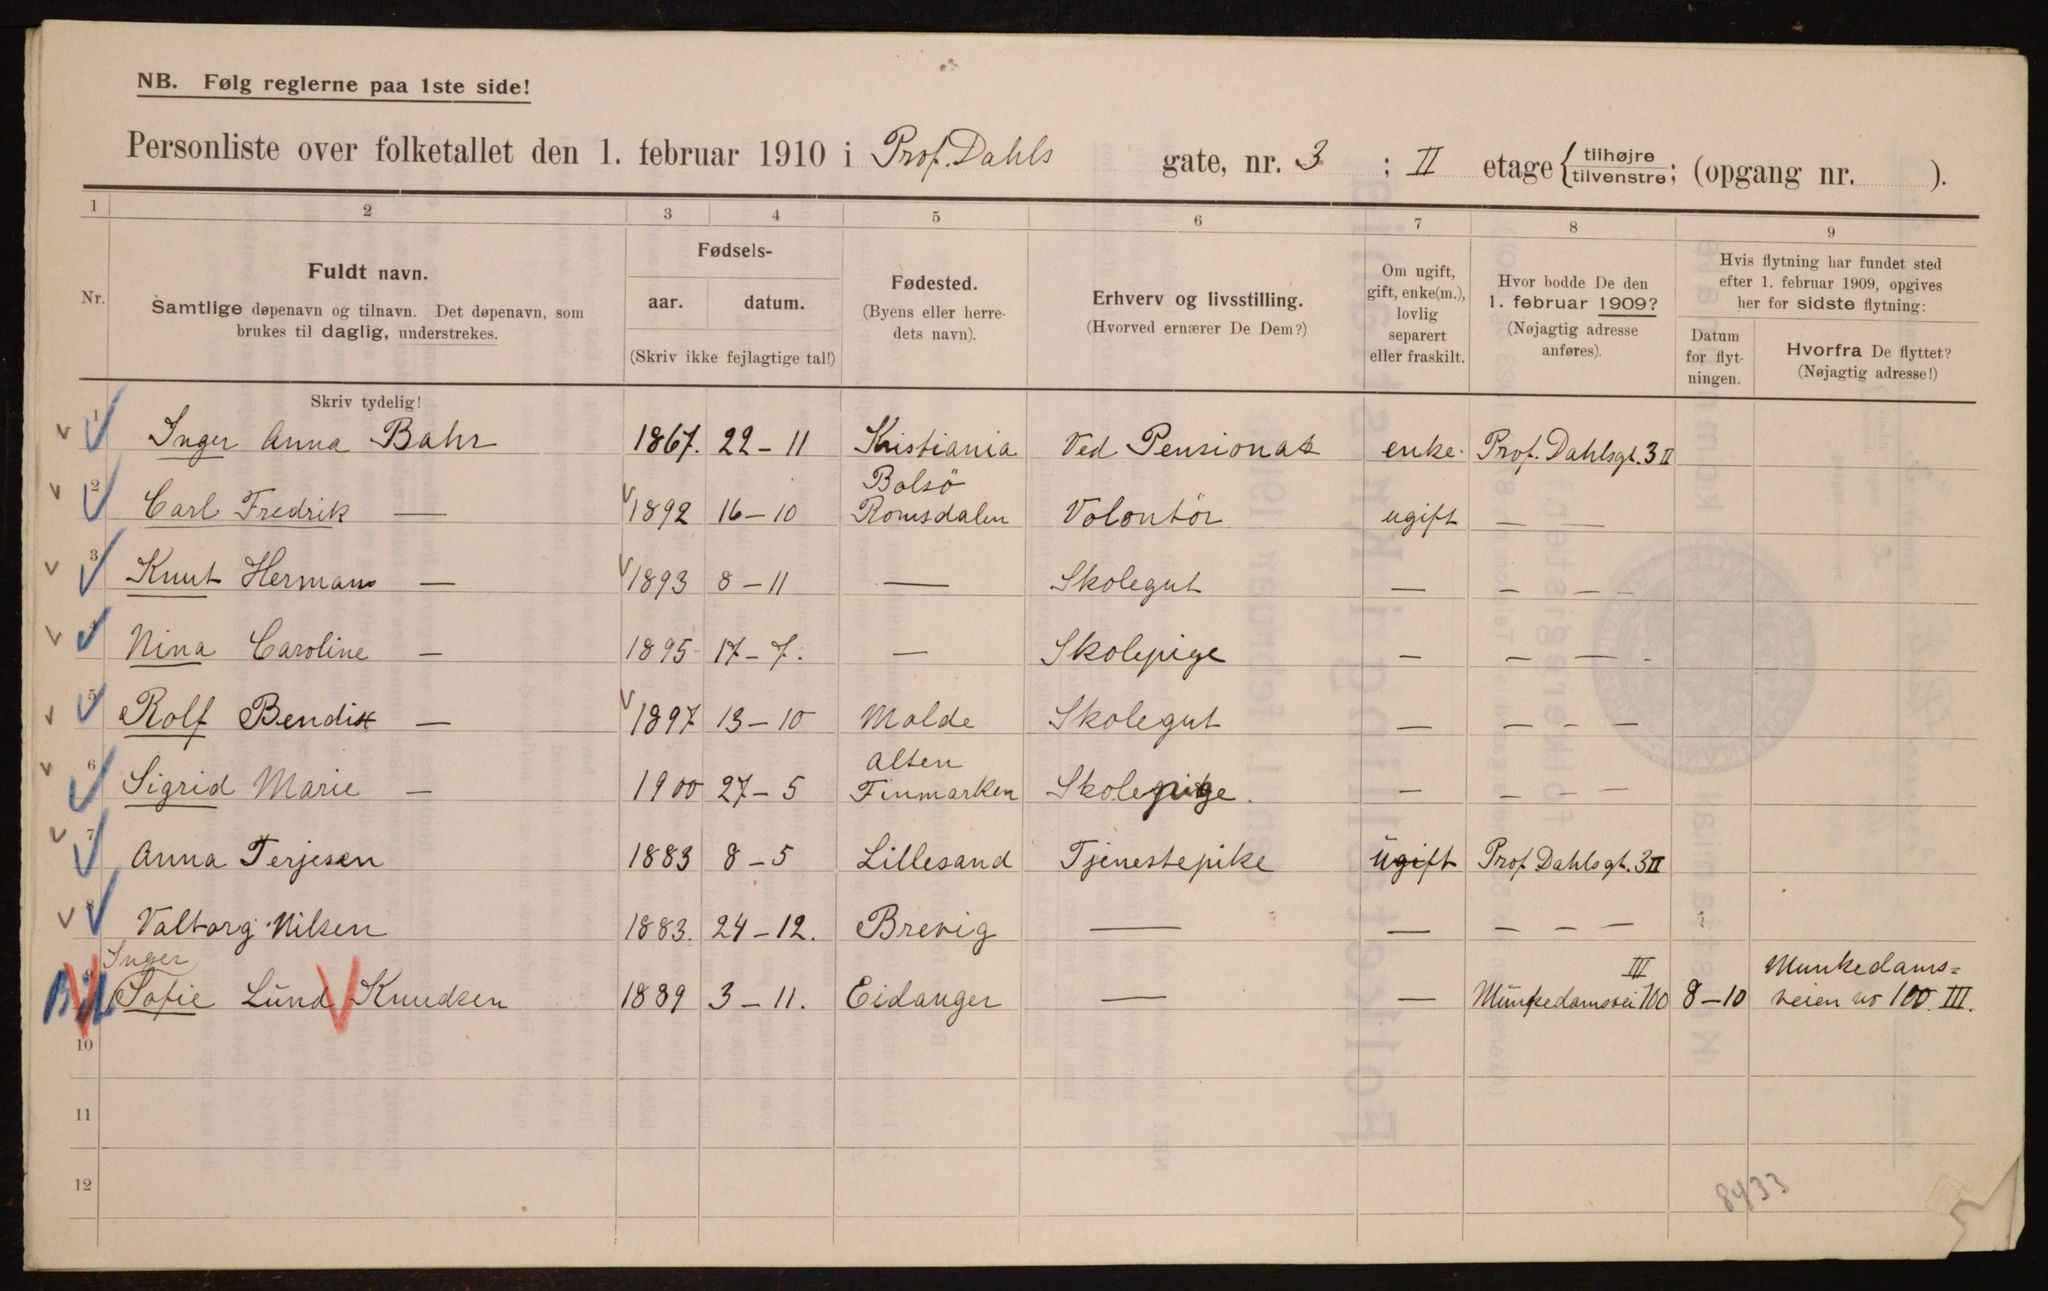 NB. Følg reglerne paa 1ste side!
Personliste over folketallet den 1. februar 1910 i Prof. Dahls gate, nr. 3 ; II etage { tilhøjre / tilvenstre ; (opgang nr. ).
1 2 3 4 5 6 7 8 9
Nr.
Fuldt navn.
Samtlige døpenavn og tilnavn. Det døpenavn, som
brukes til daglig, understrekes.
Fødsels-
aar. datum.
(Skriv ikke fejlagtige tal!)
Fødested.
(Byens eller herre-
dets navn).
Erhverv og livsstilling.
(Hvorved ernærer De Dem?)
Om ugift,
gift, enke(m.),
lovlig
separert
eller fraskilt.
Hvor bodde De den
1. februar 1909?
(Nøjagtig adresse
anføres).
Hvis flytning har fundet sted
efter 1. februar 1909, opgives
her for sidste flytning:
Datum
for flyt-
ningen.
Hvorfra De flyttet?
(Nøjagtig adresse!)
Skriv tydelig!
1 Inger Anna Bahr 1867. 22–11 Kristiania Ved Pensionat enke. Prof. Dahlsgt. 3 II
2 Carl Fredrik — 1892 16–10 Bolsö Romsdalen Volontör ugift — —
3 Knut Herman — 1893 8–11 — Skolegut — — — —
4 Nina Caroline — 1895 17–7. — Skolepige — — — -
5 Rolf Bendix — 1897 13–10 Molde Skolegut — — — —
6 Sigrid Marie — 1900 27–5 Alten Finmarken Skolepige. — — — —
7 Anna Terjesen 1883 8–5 Lillesand Tjenestepike ugift Prof. Dahlsgt. 3 II
8 Valborg Nilsen 1883. 24–12. Brevig — — — — —
9 Inger Sofie Lund Knudsen 1889 3–11. Eidanger — — Munkedamsvei 100 III 8–10 Munkedams=
veien no 100. III.
10
11
12
8433